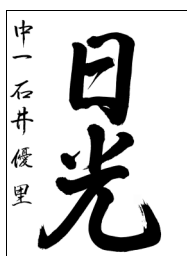 日光
中一 石井優里